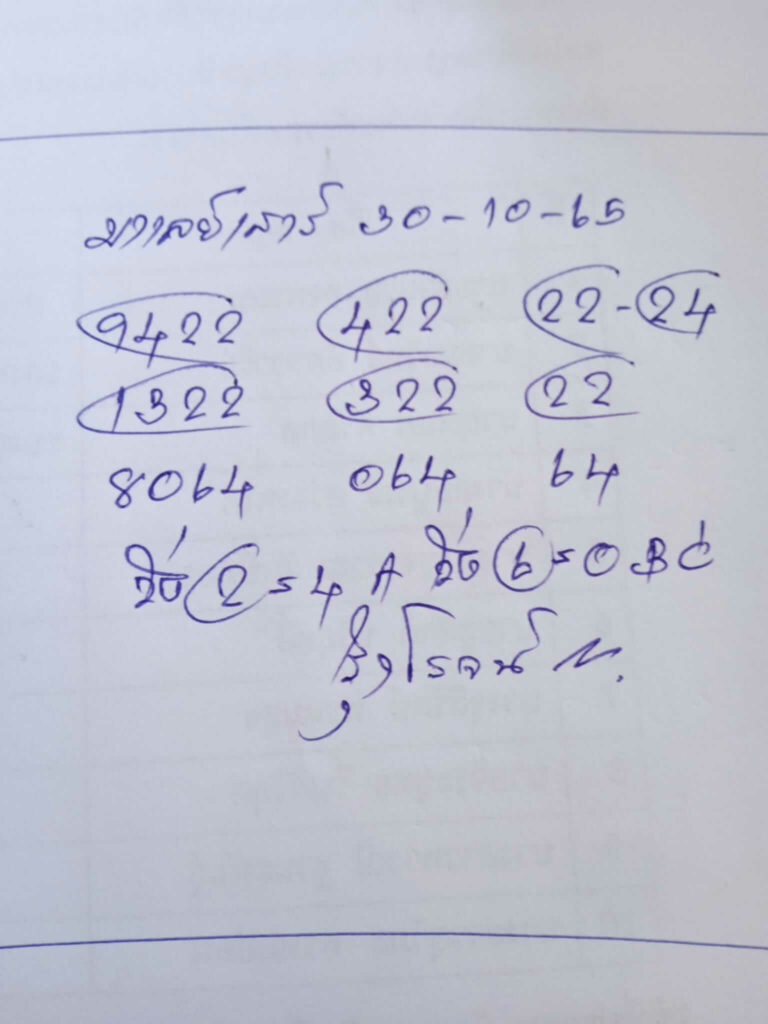 มาเลย์เสาร์ 30-10-65
9422 422 22-24
1322 322 22
8064 064 64
วิ่ง 2 = 4 A วิ่ง 6 = 0 B C
รุ่งโรจน์ N.